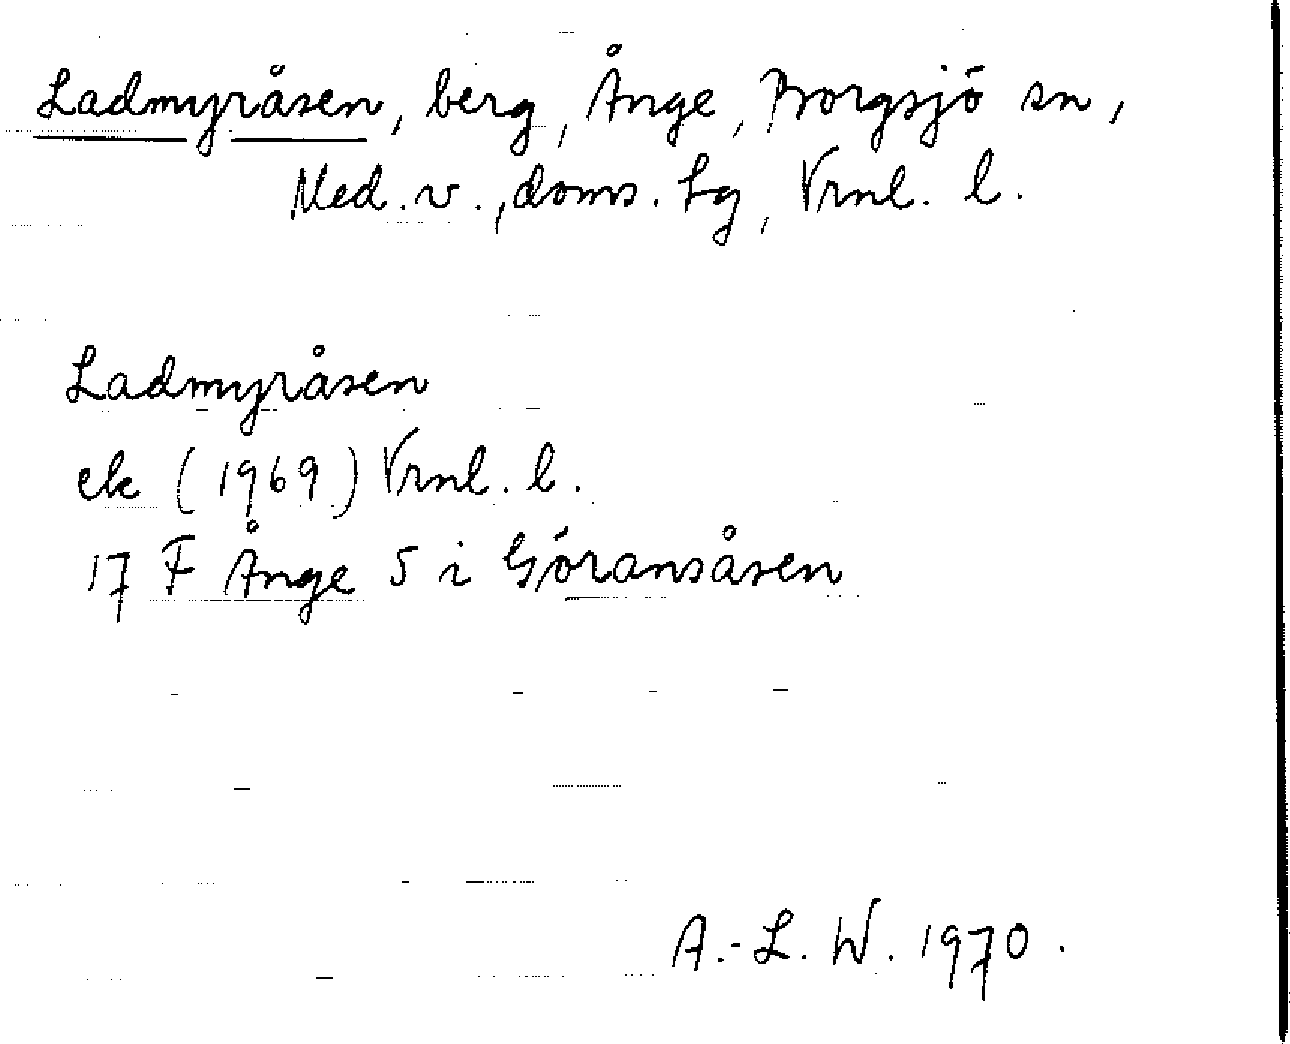 Ladmyråsen, berg, Ånge, Borgsjö sn,
Med. v., doms. hg, Vrnl. l.
Ladmyråsen
ek (1969) Vrnl. l.
17 F Ånge 5 i Göransåsen
A.-L. W. 1970.